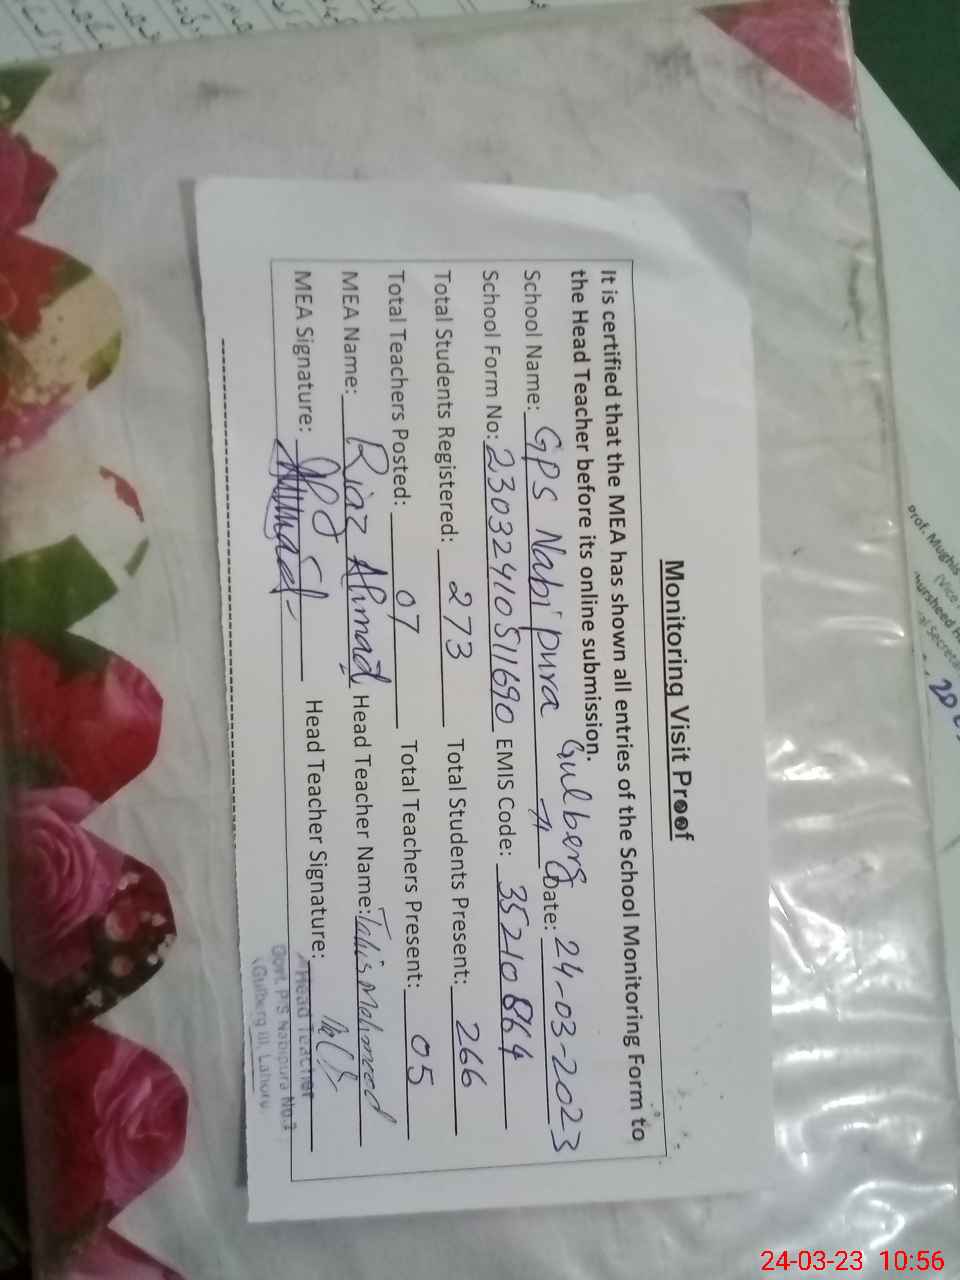 Monitoring Visit Proof
It is certified that the MEA has shown all entries of the School Monitoring Form to
the Head Teacher before its online submission.
School Name: GPS Nabi pura Gulberg Date: 24-03-2023
School Form No: 23032410511690 EMIS Code: 35210864
Total Students Registered: 273 Total Students Present: 266
Total Teachers Posted: 07 Total Teachers Present: 05
MEA Name: Riaz Ahmad Head Teacher Name: Mehmood
MEA Signature: Head Teacher Signature:
Head Teacher
Govt. P/S Nabipura No.2
Gulberg III, Lahore
Prof. Mughis
(Vice
24-03-23 10:56